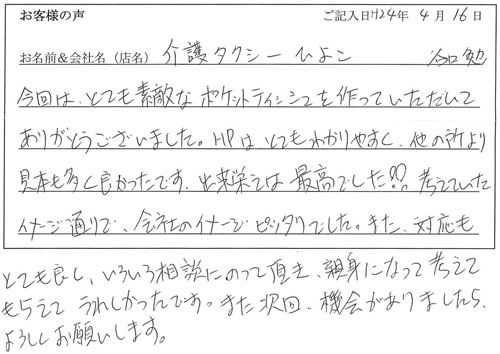 お客様の声 ご記入日H24年 4月 16日
お名前&会社名（店名） 介護タクシーひよこ 谷口 勉
今回は、とても素敵なポケットティシュを作っていただいて
ありがとうございました。HPはとてもわかりやすく、他の所より
見本も多く良かったです。出来栄えは最高でした!! 考えていた
イメージ通りで、会社のイメージピッタリでした。また、対応も
とても良し、いろいろ相談にのって頂き、親身になって考えて
もらえてうれしかったです。また次回、機会がありましたら、
よろしくお願いします。